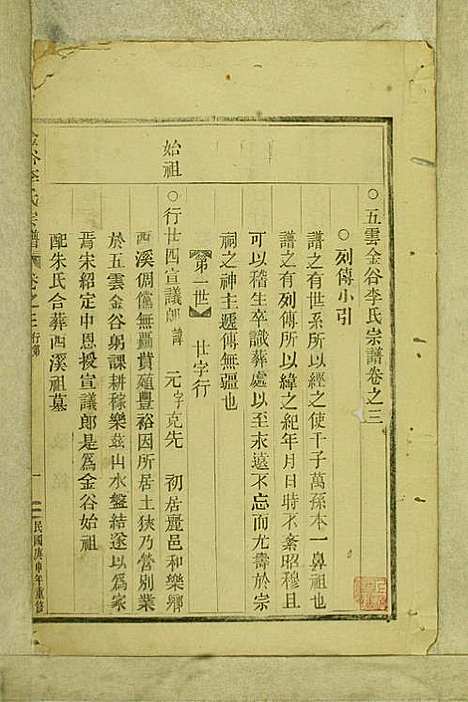 ○五雲金谷李氏宗譜卷之三
○列傳小引
譜之有世系所以經之使千子萬孫本一鼻祖也
譜之有列傳所以緯之紀年月日時不紊昭穆且
可以稽生卒識葬處以至永遠不忘而尤壽於宗
祠之神主遞傳無疆也
第一世 廿字行
始祖○行廿四宣議郎諱 元字克先 初居麗邑和樂鄉
西溪倜儻無羈貲殖豐裕因所居土狹乃營別業
於五雲金谷躬課耕稼樂茲山水盤結遂以爲家
焉宋紹定中恩授宣議郎是爲金谷始祖
配朱氏合葬西溪祖墓
金谷李氏宗譜 卷之三 行第 一 民國庚申年重修